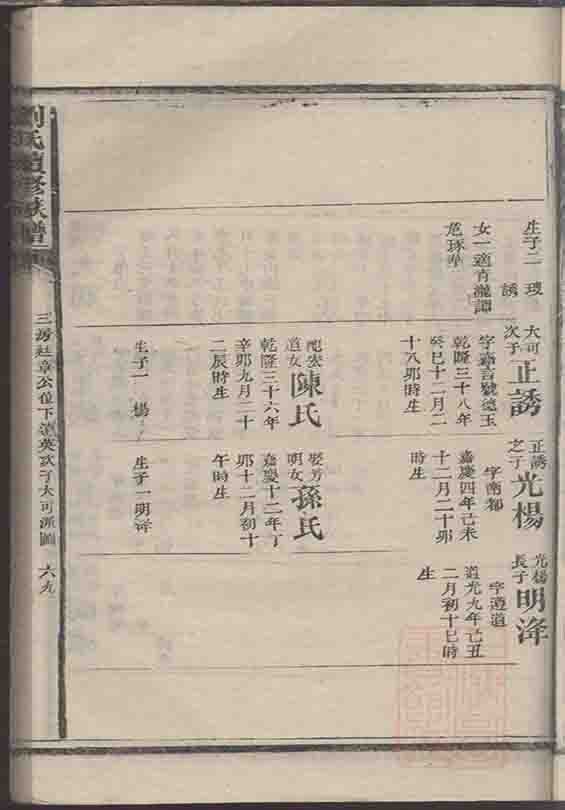 生子二 璞
誘
女一適青瀧譚
危琢牟
大可
次子
正誘
字嘉言號德玉
乾隆三十八年
癸巳十二月二
十八卯時生
配宏
道女
陳氏
乾隆三十六年
辛卯九月二十
二辰時生
生子一 楊
正誘
之子
光楊
字南都
嘉慶四年己未
十二月二十卯
時生
娶芳
明女
孫氏
嘉慶十二年丁
卯十二月初十
午時生
生子一明
光楊
長子
明洚
字遵道
道光九年己丑
二月初十巳時
生
劉氏續修族譜
三房社章公位下
子大可派圖
六九